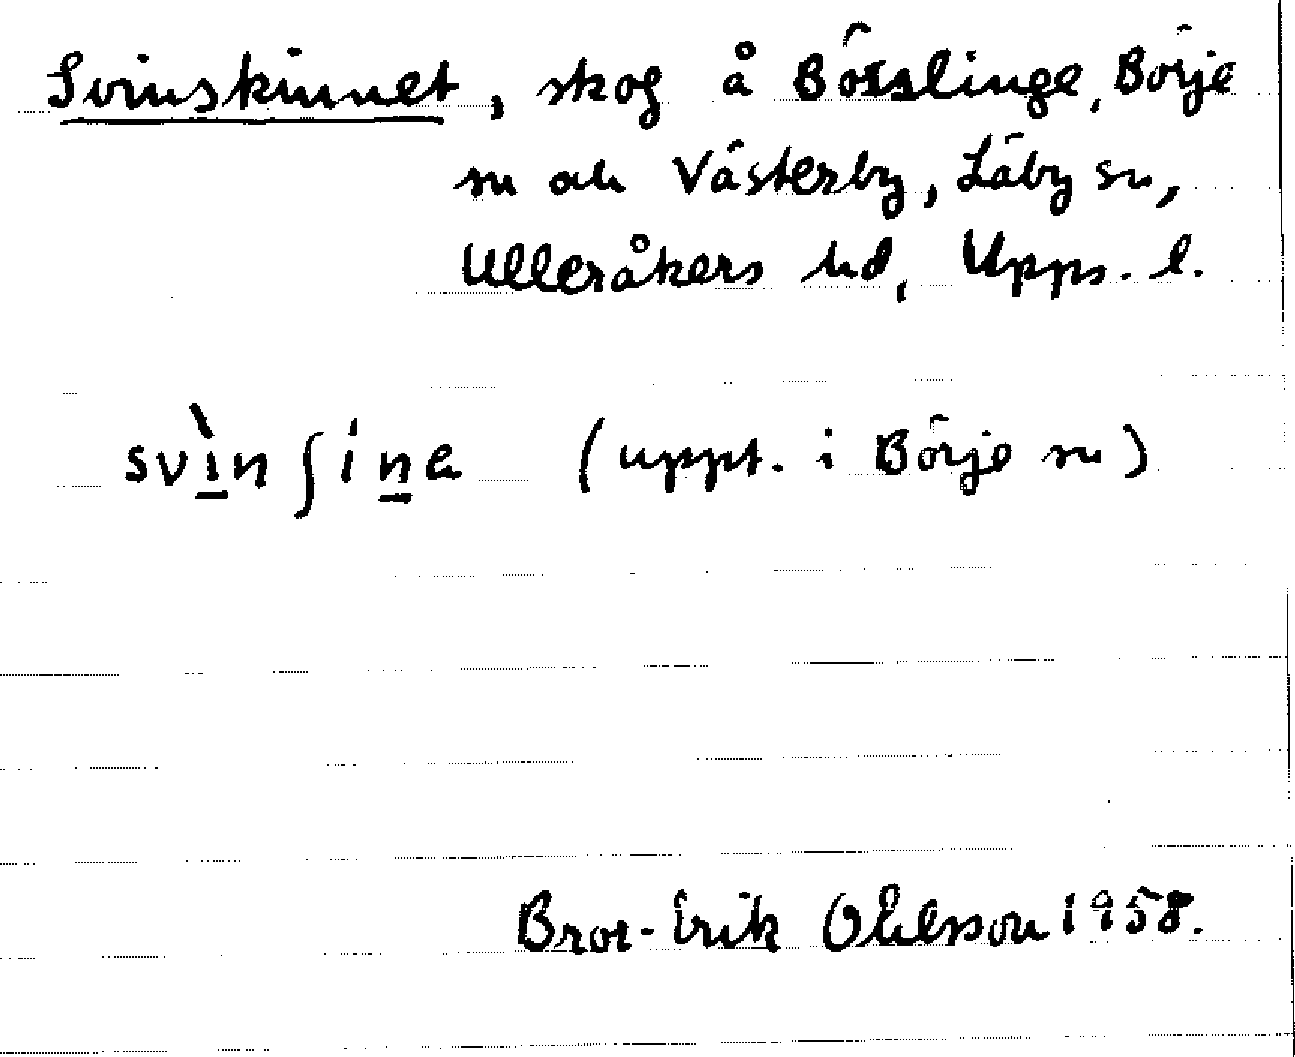 Svinskinnet, skog å Bösslinge, Börje
sn och Västerby, Läby sn,
Ulleråkers hd, Upps. l.
svìn ʃina (uppt. i Börje sn)
Bror-Erik Ohlsson 1958.